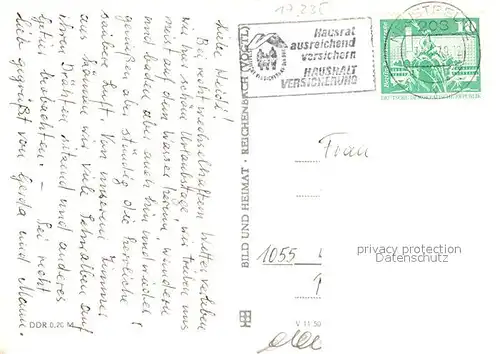 19235
Hausrat
ausreichend
versichern
HAUSHALT
VERSICHERUNG
DEUTSCHE DEMOKRATISCHE REPUBLIK
10
Liebe Heidi!
Bei recht wechselhaftem Wetter verleben
wir hier schön Urlaubstage. Wir treiben uns
meist auf dem Wasser herum, wandern
und baden aber auch hin und wieder!
genießen der ständig die herrliche
saubere Luft. Von unserem Zimmer
aus können wir viele Schwalben auf
ihren Drähten sitzend und anderes
Getier beobachten. – Sei recht
lieb gegrüßt von Gerda und Mann.
BILD UND HEIMAT · REICHENBACH (VOGTL)
Frau
1055
privacy protection
Datenschutz
DDR 0,20 M
V 11 50